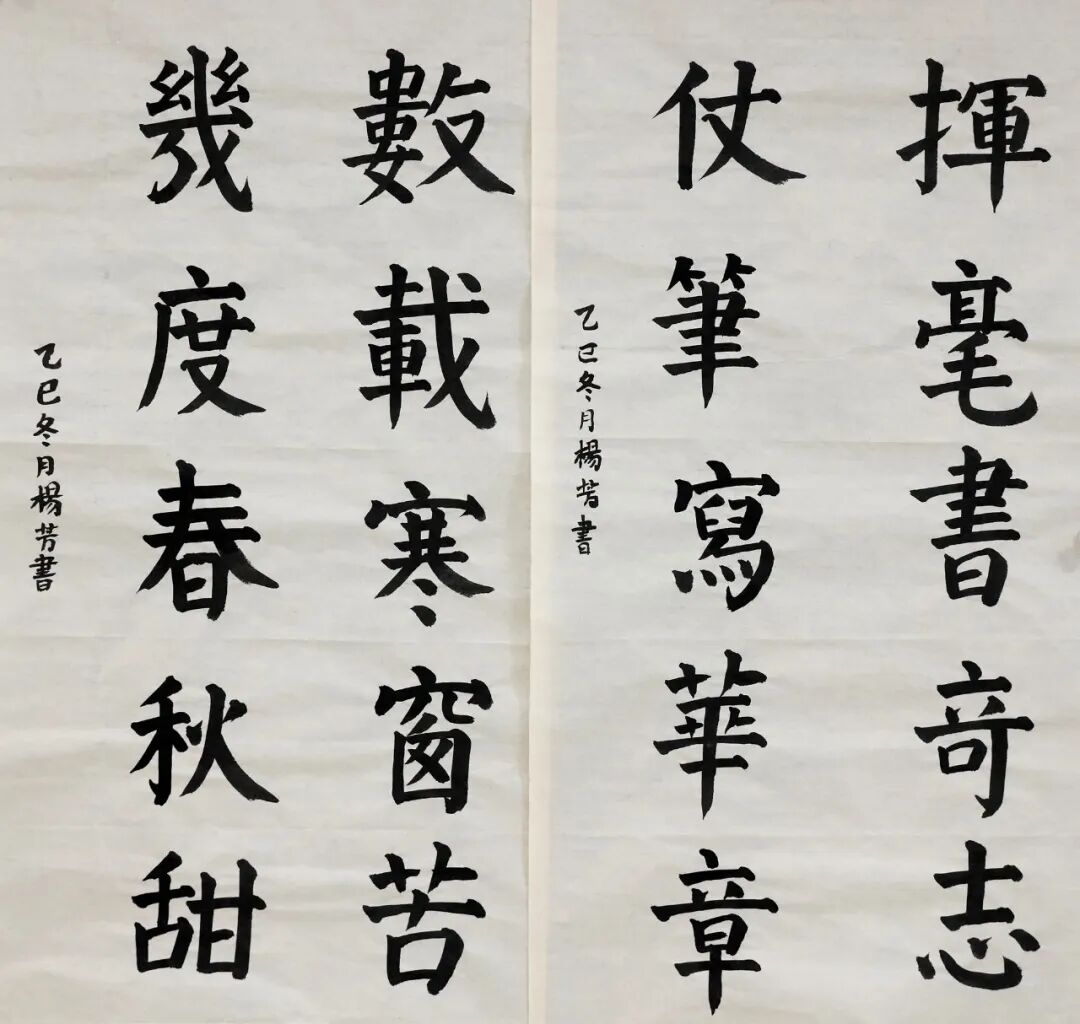 揮毫書奇志
仗筆寫華章
乙巳冬月楊芳書
數載寒窗苦
幾度春秋甜
乙巳冬月楊芳書